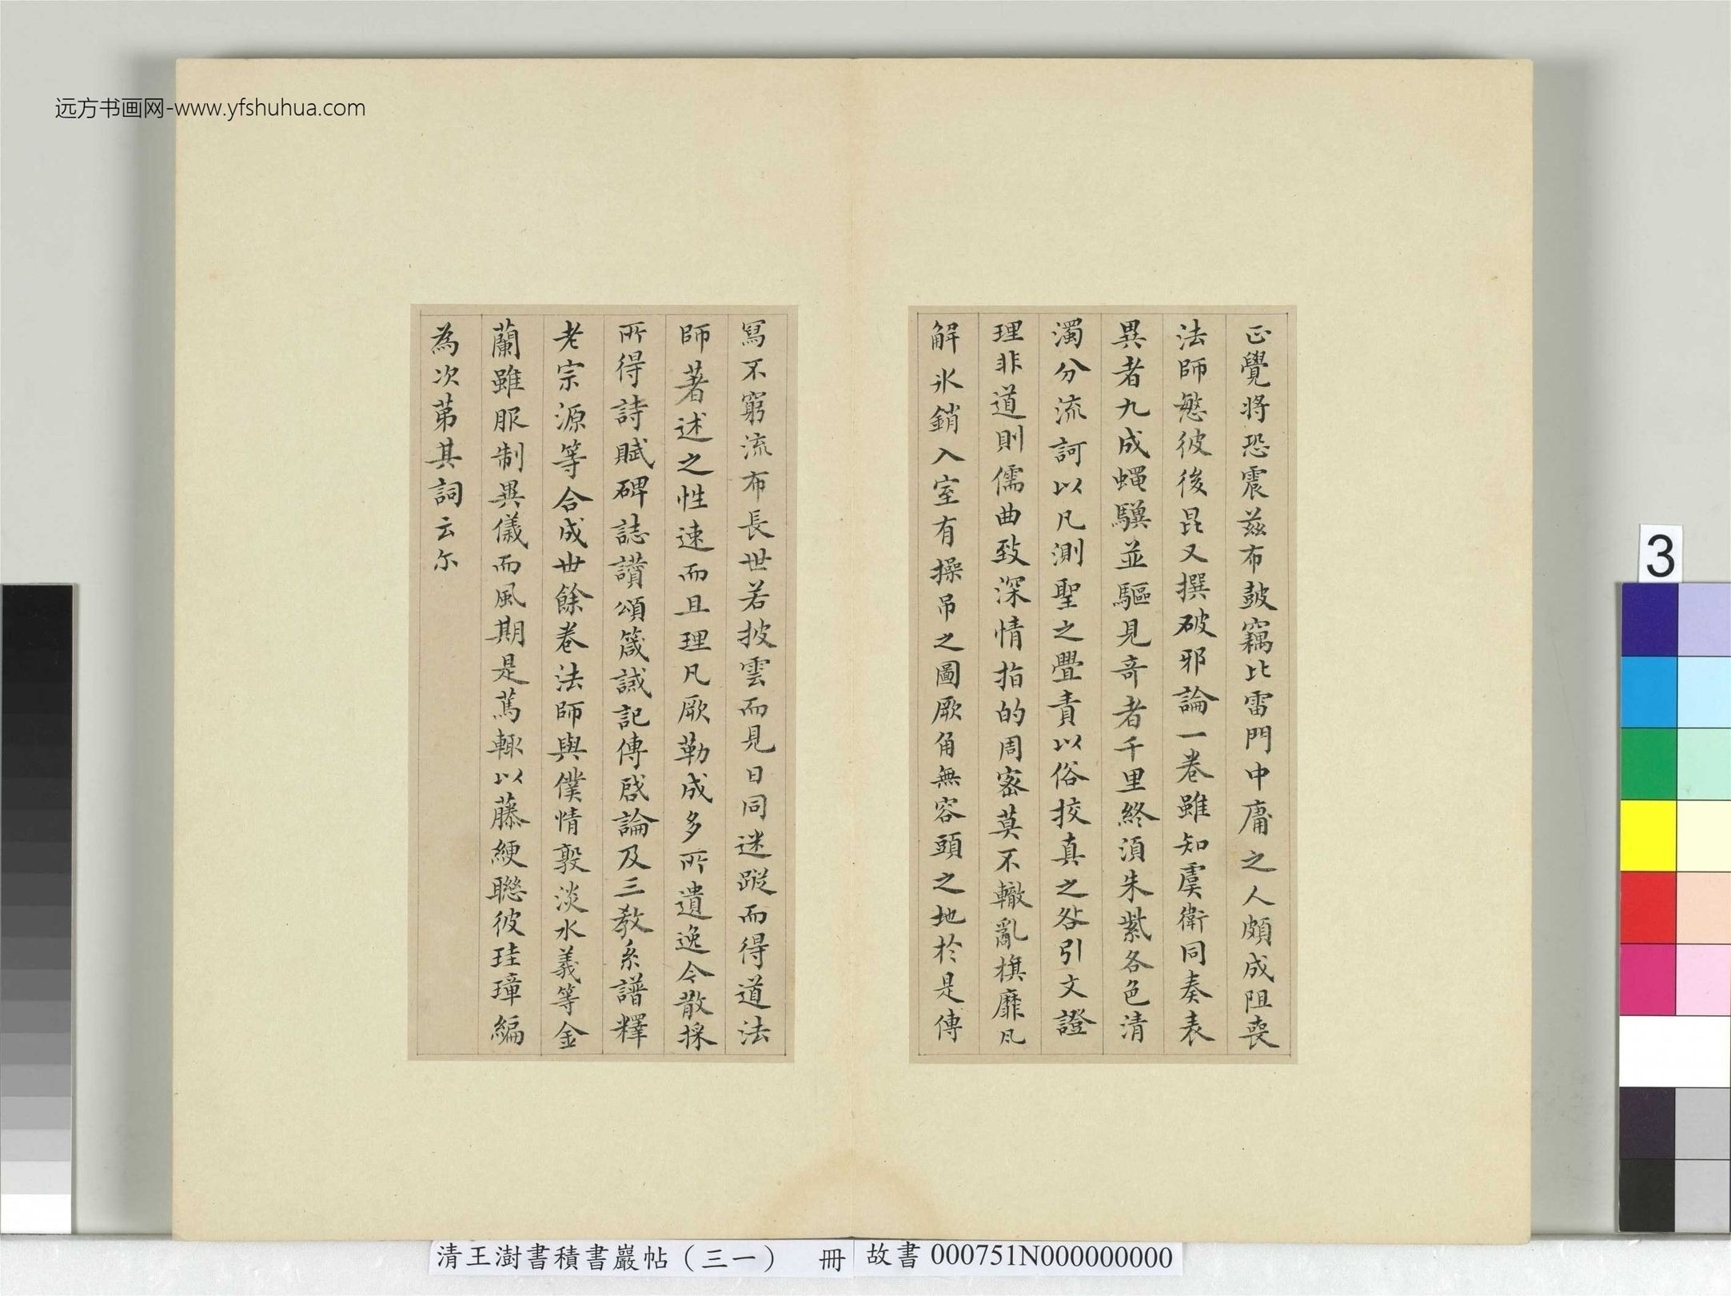 远方书画网-www.yfshuhua.com
正覺將恐震茲布鼓竊比雷門中庸之人頗成阻喪
法師愍彼後昆又撰破邪論一卷雖知虞衛同奏表
異者九成蠅驥並驅見奇者千里終須朱紫各色清
濁分流訶以凡測聖之疊責以俗挍真之咎引文證
理非道則儒曲致深情指的周密莫不轍亂旗靡瓦
解冰銷入室有操吊之圖厥角無容頭之地於是傳
寫不窮流布長世若披雲而見日同迷蹤而得道法
師著述之性速而且理凡厥勒成多所遺逸今散採
所得詩賦碑誌讚頌箴誡記傳啟論及三教系譜釋
老宗源等合成卅餘卷法師與僕情敦淡水義等金
蘭雖服制異儀而風期是篤輒以藤綆聯彼珪璋編
為次第其詞云尔
清王澍書積書巖帖（三一） 冊 故書 000751N000000000
3